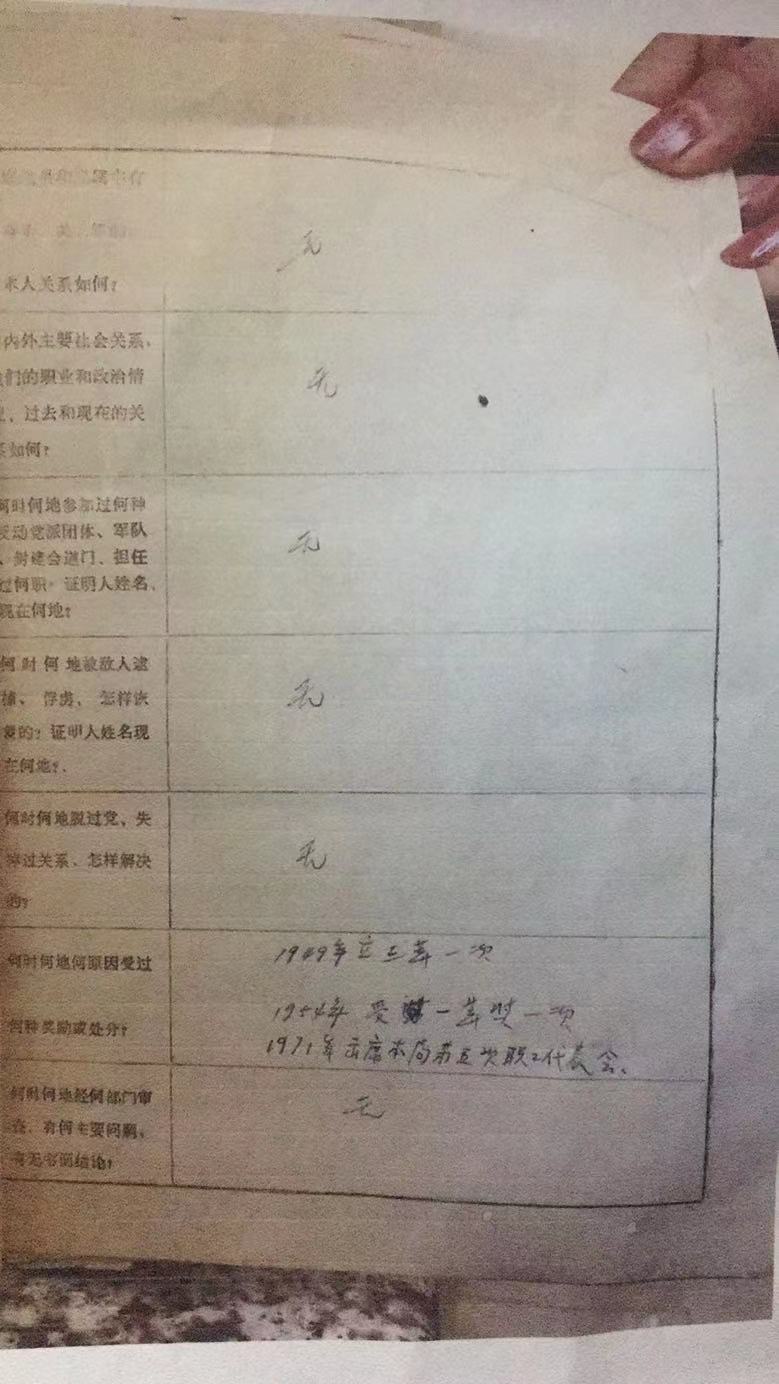 本人关系如何？
无
内外主要社会关系、
们的职业和政治情
过去和现在的关
如何？
无
何时何地参加过何种
反动党派团体、军队
、封建会道门、担任
过何职 证明人姓名、
现在何地？
无
何时何地被敌人逮
捕、俘虏，怎样恢
复的？证明人姓名现
在何地？
无
何时何地脱过党、失
掉过关系、怎样解决
的？
无
何时何地何原因受过
何种奖励或处分？
1949年立三等一次
1954年 受 一等奖一次
1971年出席本局第五次职工代表会、
何时何地经何部门审
查、有何主要问题、
有无书面结论？
无